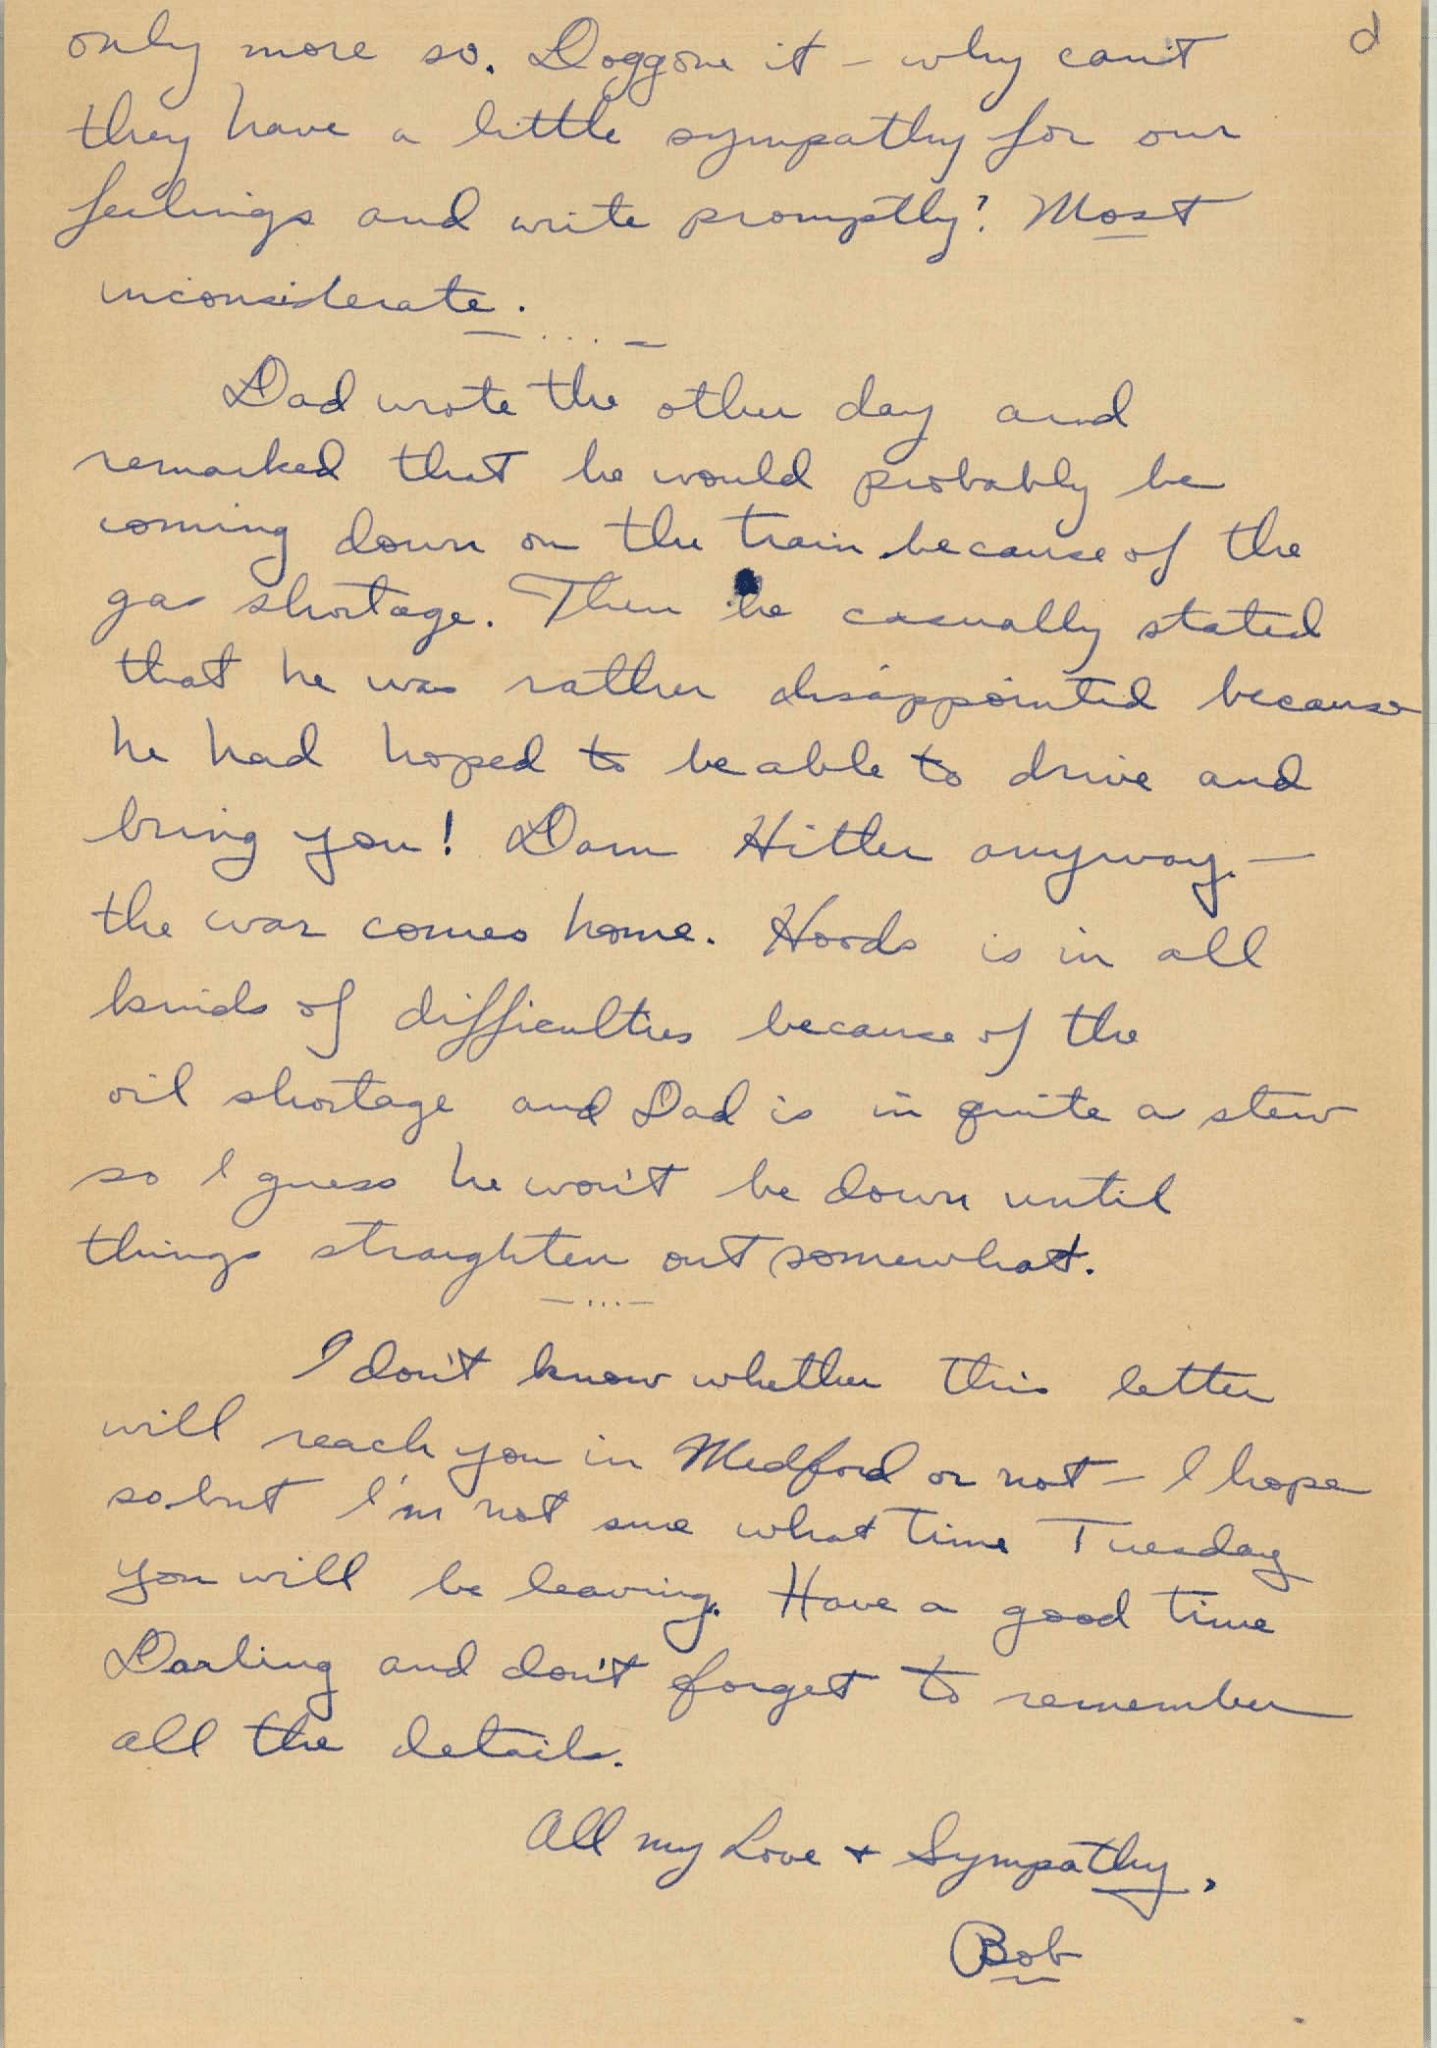 d
only more so. Doggone it – why can't
they have a little sympathy for our
feelings and write promptly? Most
inconsiderate.
— . . . —
Dad wrote the other day and
remarked that he would probably be
coming down on the train because of the
gas shortage. Then he casually stated
that he was rather disappointed because
he had hoped to be able to drive and
bring you! Dam Hitler anyway. —
the war comes home. Hoods is in all
kinds of difficulties because of the
oil shortage and Dad is in quite a stew
so I guess he won't be down until
things straighten out somewhat.
— . . . —
I don't know whether this letter
will reach you in Medford or not – I hope
so but I'm not sure what time Tuesday
you will be leaving. Have a good time
Darling and don't forget to remember
all the details.
All my Love + Sympathy,
Bob